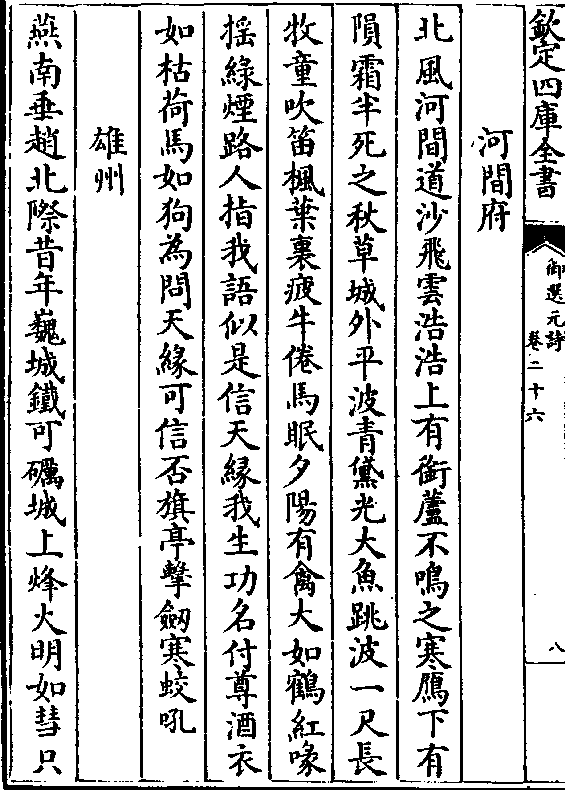 欽定四庫全書
御選元詩
卷二十六
八
河間府
北風河間道沙飛雲浩浩上有銜蘆不鳴之寒鴈下有
隕霜半死之秋草城外平波青黛光大魚跳波一尺長
牧童吹笛楓葉裏疲牛倦馬眠夕陽有禽大如鶴紅喙
揺緑煙路人指我語似是信天縁我生功名付尊酒衣
如枯荷馬如狗為問天縁可信否旗亭擊劒寒蛟吼
雄州
燕南垂趙北際昔年巍城鐵可礪城上烽火明如彗只